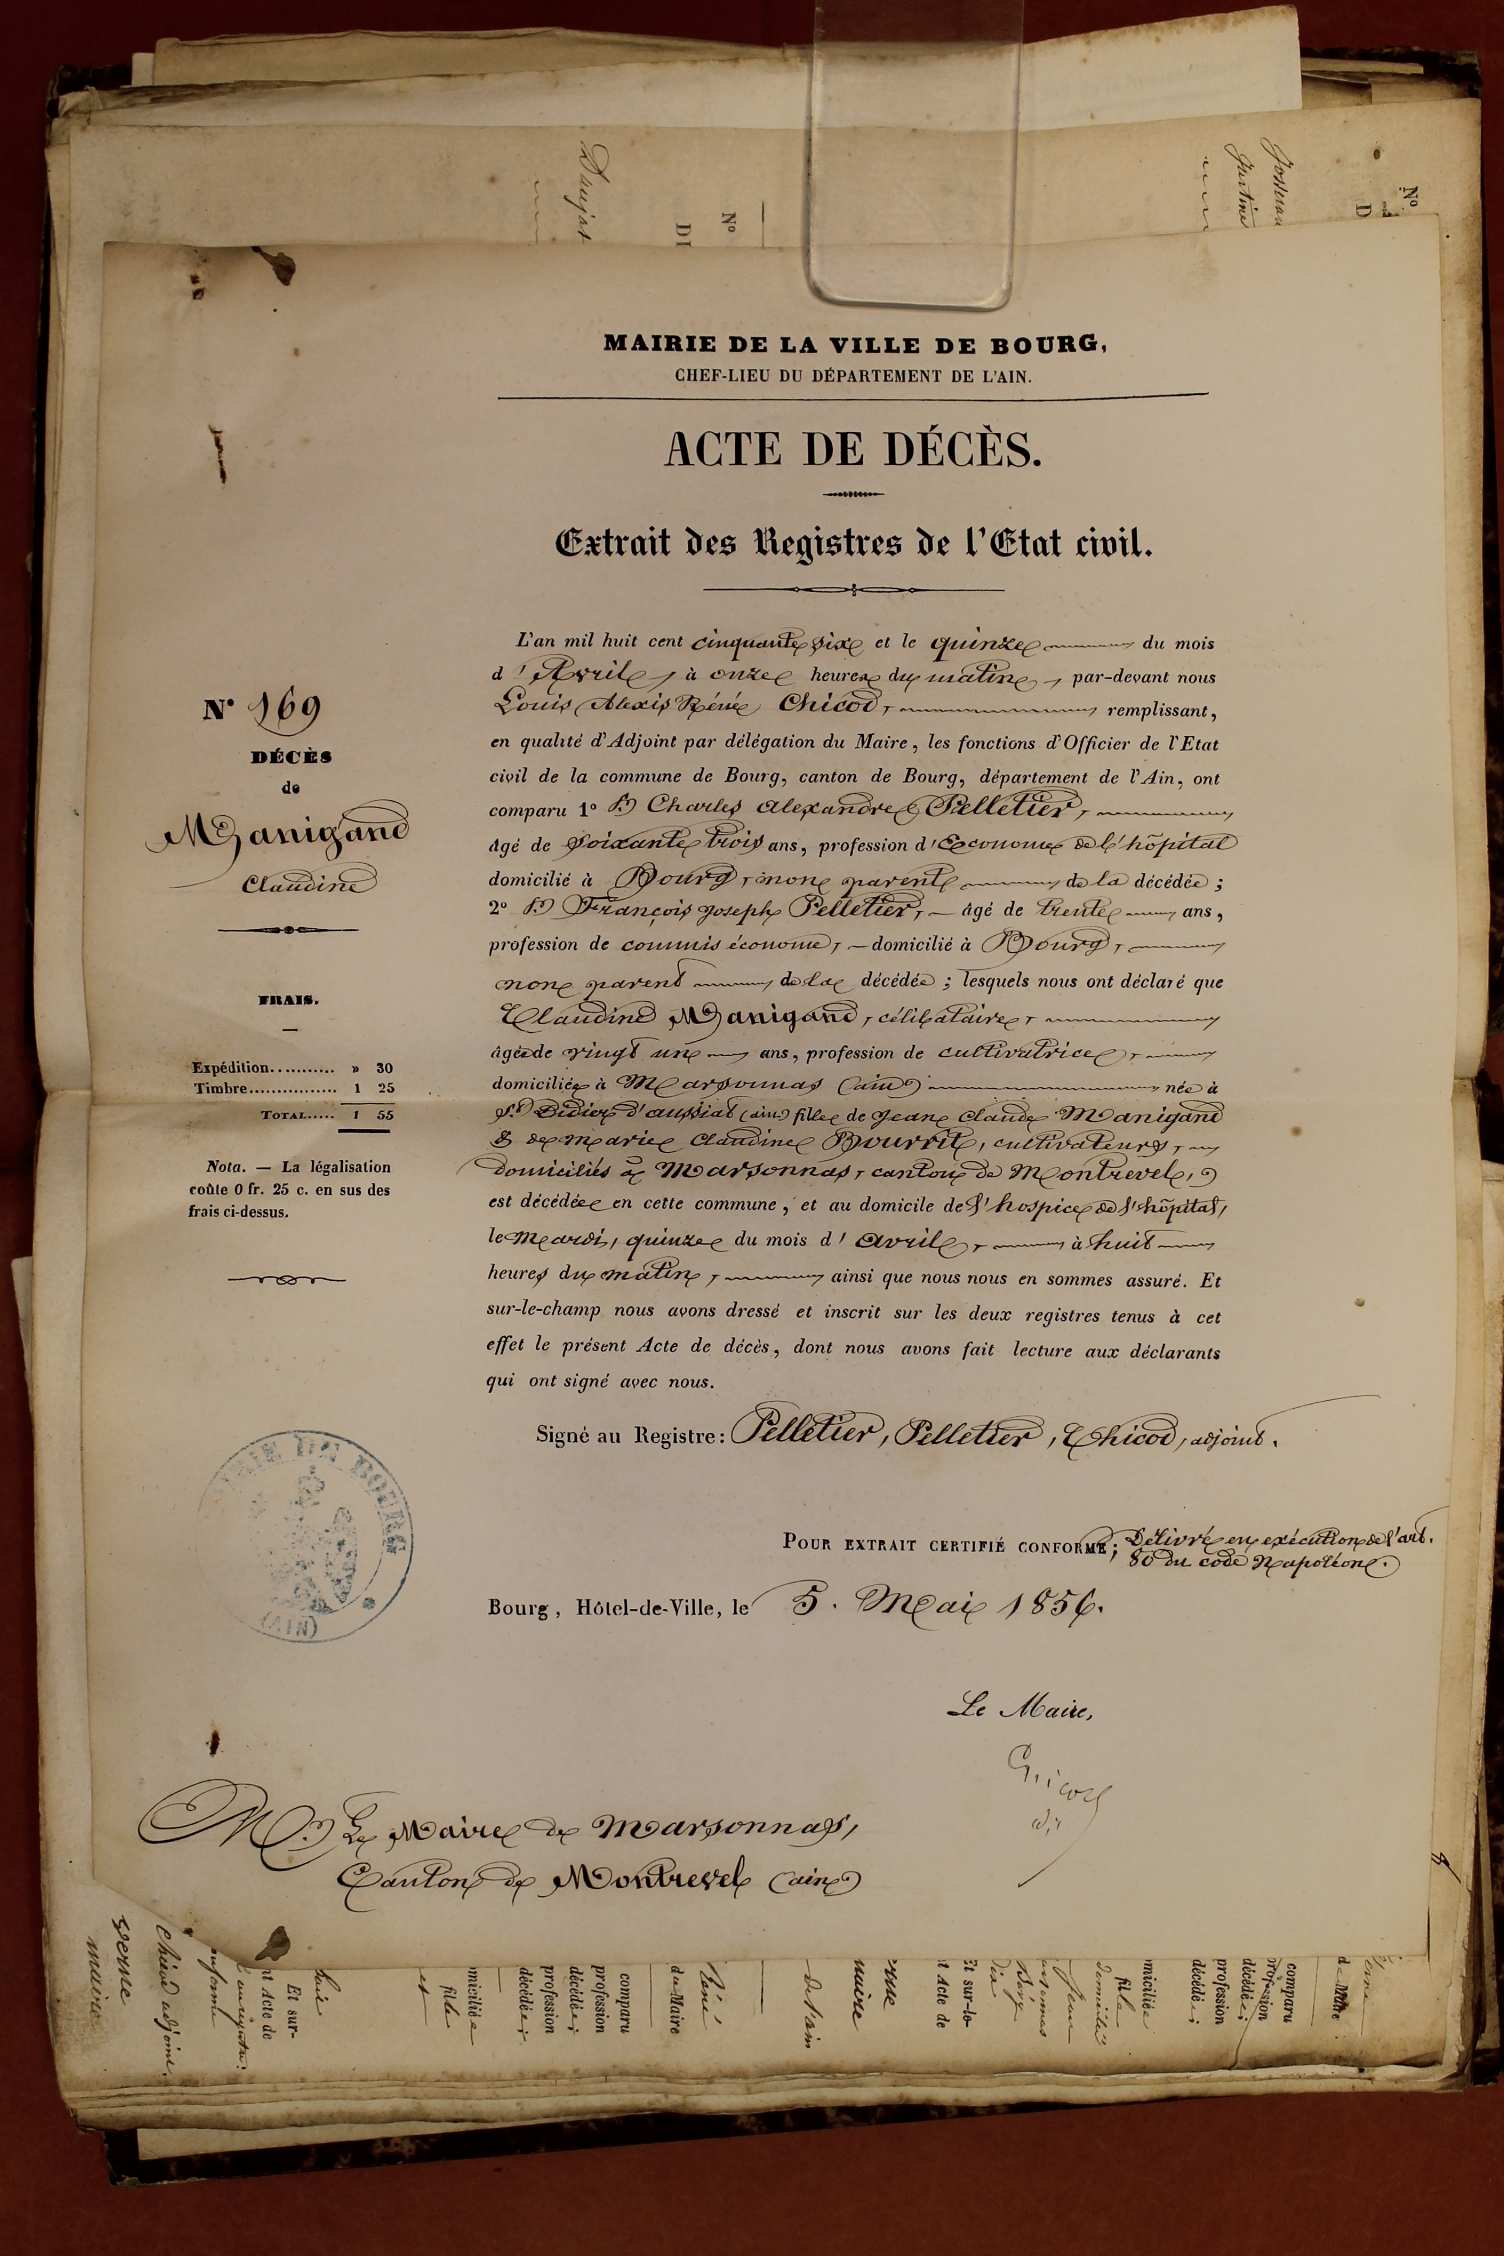 MAIRIE DE LA VILLE DE BOURG,
CHEF-LIEU DU DÉPARTEMENT DE L'AIN.
ACTE DE DÉCÈS.
Extrait des Registres de l'Etat civil.
N° 169
DÉCÈS
de
Manigand
Claudine
FRAIS.
Expédition........... » 30
Timbre............... 1 25
TOTAL..... 1 55
Nota. — La légalisation
coûte 0 fr. 25 c. en sus des
frais ci-dessus.
L'an mil huit cent cinquante six et le quinze du mois
d'Avril, à onze heures du matin, par-devant nous
Louis Alexis Réné Chicod, remplissant,
en qualité d'Adjoint par délégation du Maire, les fonctions d'Officier de l'Etat
civil de la commune de Bourg, canton de Bourg, département de l'Ain, ont
comparu 1° Sr Charles Alexandre Pelletier,
âgé de soixante trois ans, profession d'Econome de l'hôpital
domicilié à Bourg, non parent de la décédée;
2° Sr François Joseph Pelletier, — âgé de trente ans,
profession de commis économe, — domicilié à Bourg,
non parent de la décédée; lesquels nous ont déclaré que
Claudine Manigand, célibataire,
âgée de vingt un ans, profession de cultivatrice,
domiciliée à Marsonnas (ain) née à
St Didier d'aussiat (ain) fille de Jean Claude Manigand
& de Marie Claudine Bourrit, cultivateurs,
domiciliés à Marsonnas, canton de Montrevel,
est décédée en cette commune, et au domicile de l'hospice de l'hôpital,
le Mardi, quinze du mois d'avril, à huit
heures du matin, ainsi que nous nous en sommes assuré. Et
sur-le-champ nous avons dressé et inscrit sur les deux registres tenus à cet
effet le présent Acte de décès, dont nous avons fait lecture aux déclarants
qui ont signé avec nous.
Signé au Registre: Pelletier, Pelletier, Chicod, adjoint.
MAIRIE DE BOURG
(AIN)
POUR EXTRAIT CERTIFIÉ CONFORME; Délivré en exécution de l'art.
80 du code Napoléon.
Bourg, Hôtel-de-Ville, le 5. Mai 1856.
Le Maire,
Chicod
adj
M. Le Maire de Marsonnas,
Canton de Montrevel (ain)